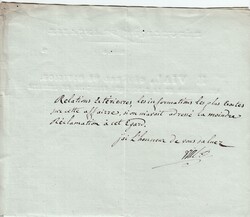 Relations Extérieures les informations les plus exactes
sur cette affaire, si on m'avoit adressé la moindre
Réclamation à cet Egard.
j'ai l'honneur de vous saluer